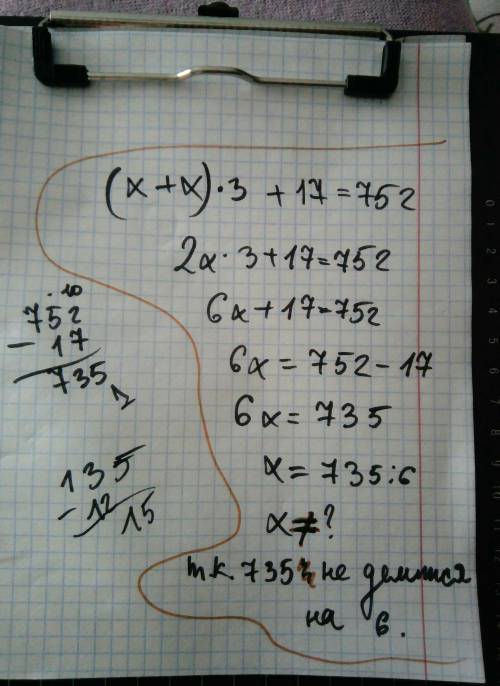 (x + x) · 3 + 17 = 752
2x · 3 + 17 = 752
6x + 17 = 752
6x = 752 - 17
6x = 735
x = 735 : 6
x ≠ ?
т.к. 735 не делится
на 6.
10
752
- 17
735
135
- 12
15